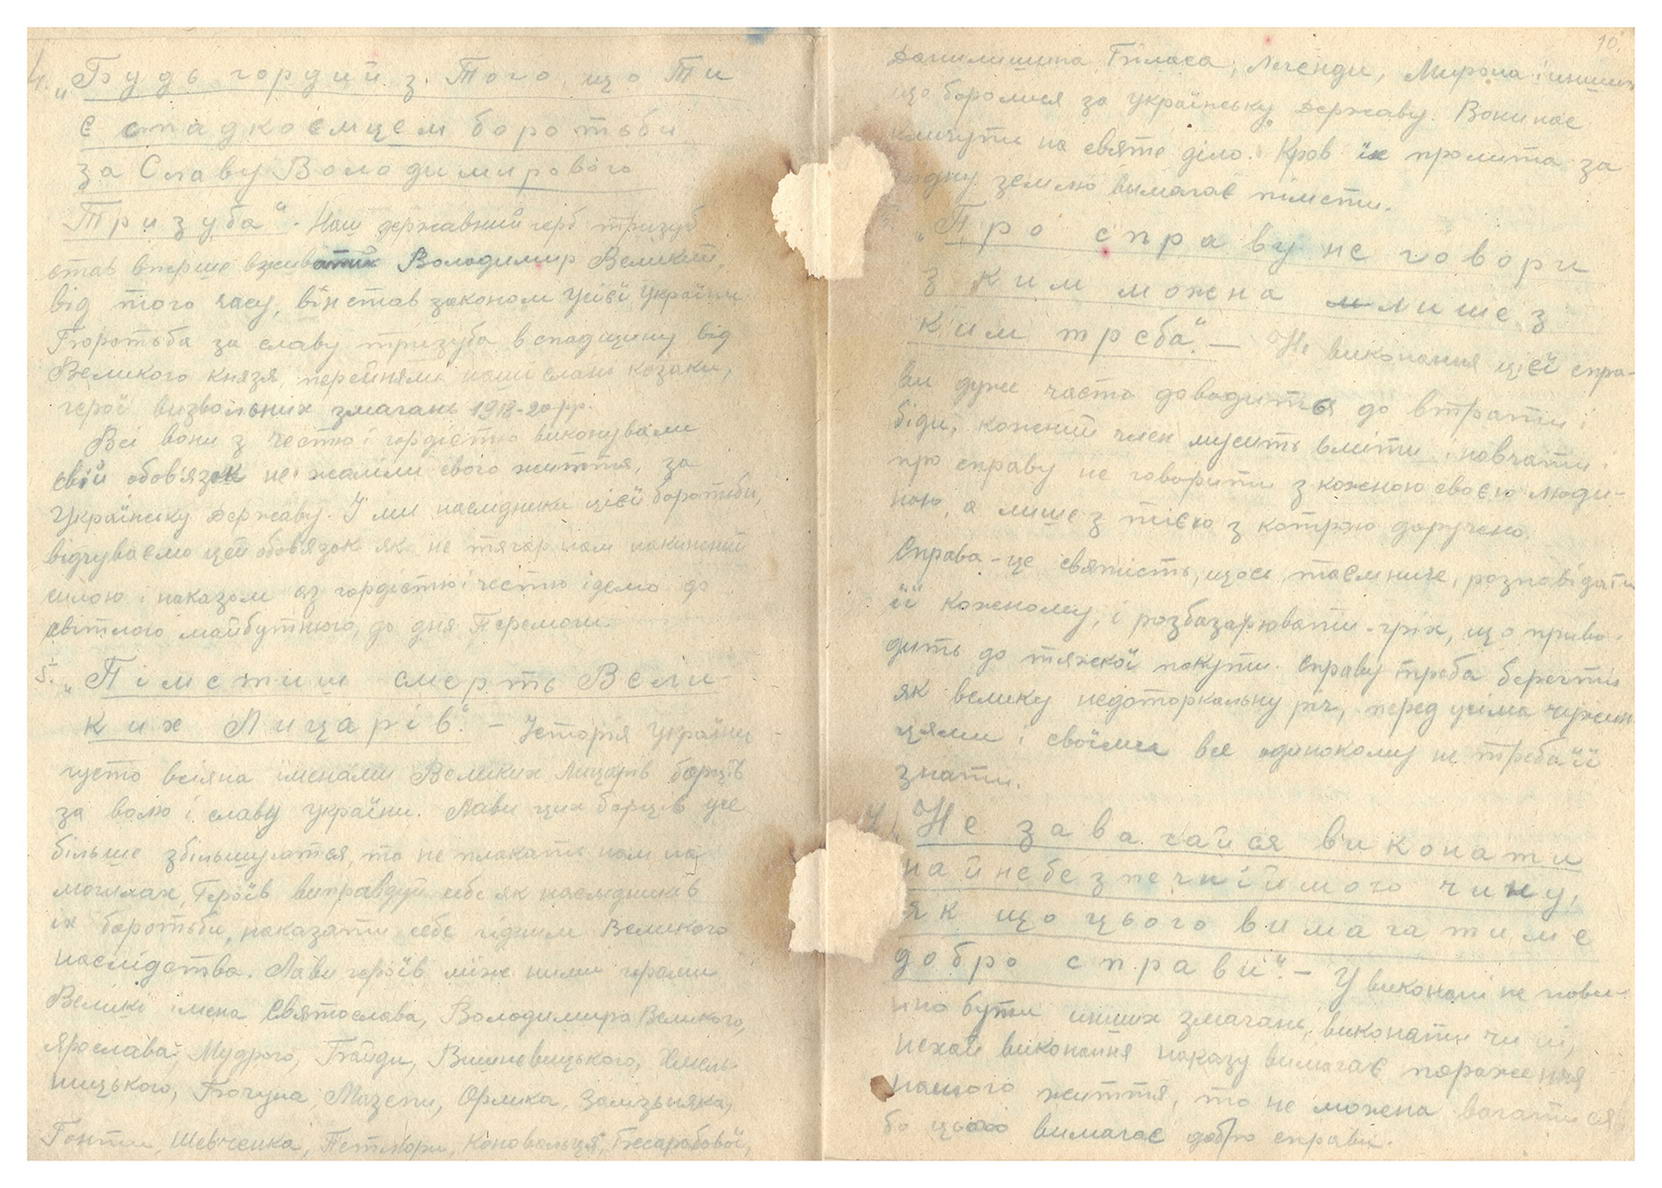 4. „Будь гордий з того, що Ти
є спадкоємцем боротьби
за Славу Володимирового
Тризуба“. Наш державний герб тризуб
став вперше вживати Володимир Великий,
від того часу, він став законом усієї України
Боротьба за славу тризуба в спадщину від
Великого князя, перейняли наші славні козаки,
герої визвольних змагань 1918-20 рр.
Всі вони з честю і гордістю виконували
свій обов'язок не жаліли свого життя, за
Українську Державу. І ми наслідники цієї боротьби,
відчуваємо цей обов'язок як не тягар нам накинений
силою і наказом а з гордістю і честю ідемо до
світлого майбутнього, до дня Перемоги.
5. „Пімстиш смерть Вели-
ких Лицарів“. – Історія України
густо всіяна іменами Великих Лицарів борців
за волю і славу України. Лави цих борців усе
більше збільшуються, та не плакати нам на
могилах Героїв виправдуй себе як наслідників
їх боротьби, показати себе гідним Великого
наслідства. Лави героїв між ними
Великі імена Святослава, Володимира Великого,
Ярослава Мудрого, Байди, Вишневицького, Хмель-
ницького, Богуна, Мазепи, Орлика, Залізьняка,
Гонти, Шевченка, Петлюри, Коновальця, Бесарабової,
10.
Данилишина, Біласа, Легенди, Мирона і инших
що боролися за українську Державу. Вони нас
кличуть на святе діло. Кров їх пролита за
рідну землю вимагає пімсти.
„Про справу не говори
з ким можна лише з
ким треба“. – Не виконання цієї спра-
ви дуже часто доводиться до втрати і
біди, кожний член мусить вміти і навчати
про справу не говорити з кожною своєю люди-
ною, а лише з тією з котрою доручено.
Справа – це святість, щось таємниче, розповідати
її кожному, і розбазарювати - гріх, що приво-
дить до тяжкої покути. Справу треба берегти
як велику недоторкальну річ, перед усіма чужин
цями і своїми все одинокому не треба її
знати.
7. „Не завагайся виконати
найнебезпечнійшого чину,
як що цього вимагатиме
добро справи“. – У виконані не пови-
нно бути инших змагань, виконати чи ні,
нехай виконання наказу вимагає пораження
нашого життя, то не можна вагатися
бо цього вимагає добро справи.